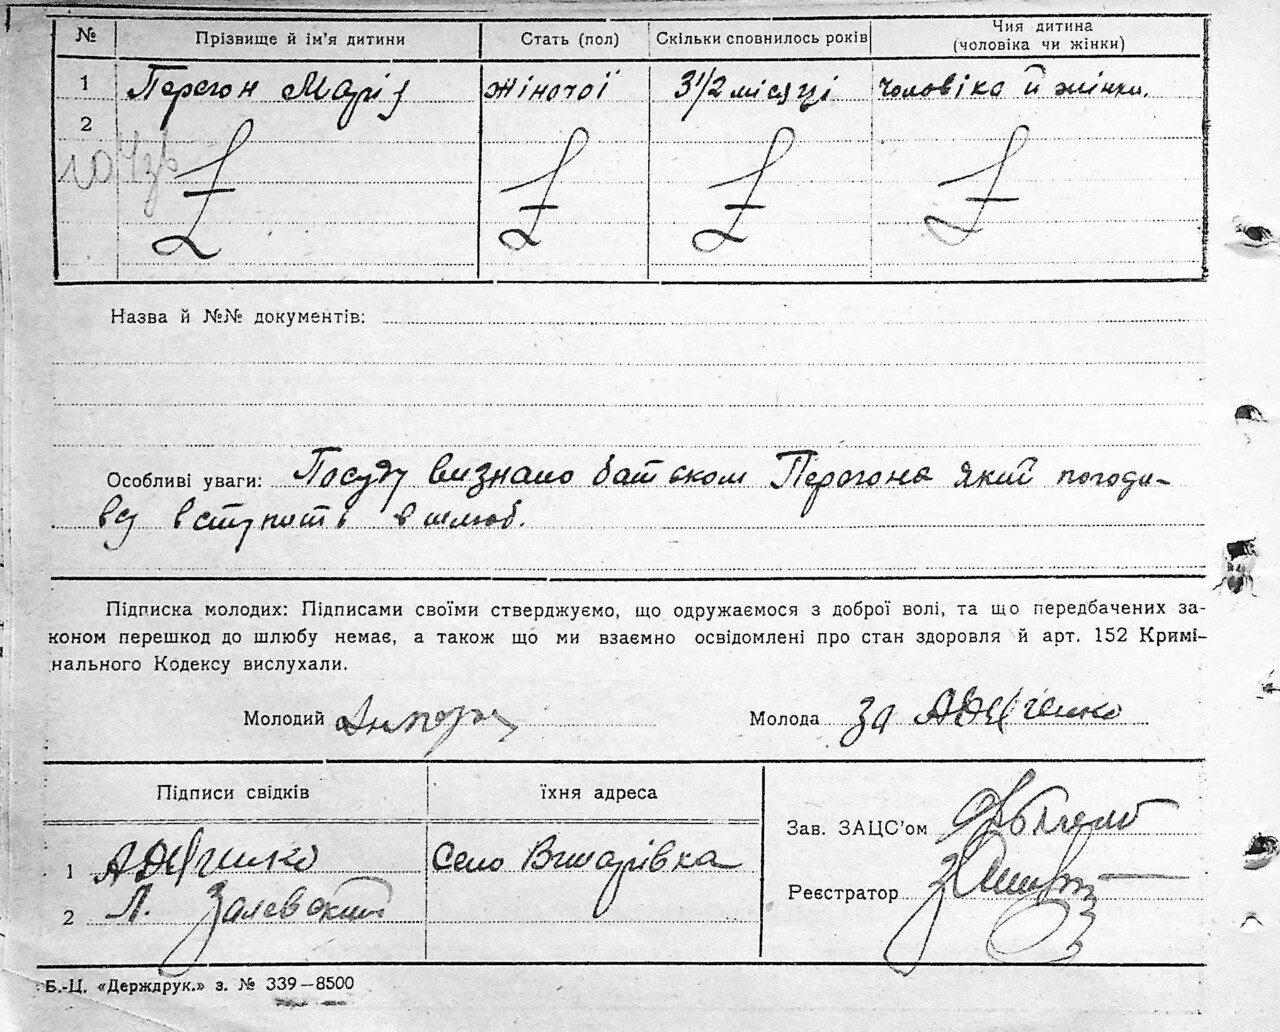 № Прізвище й ім'я дитини Стать (пол) Скільки сповнилось років Чия дитина
(чоловіка чи жінки)
1 Перегон Марія жіночої 3 1/2 місяці чоловіка й жінки.
2
Назва й №№ документів:
Особливі уваги: Посуду визнано батьком Перегона який погоди-
вся вступить в шлюб.
Підписка молодих: Підписами своїми стверджуємо, що одружаємося з доброї волі, та що передбачених за-
коном перешкод до шлюбу немає, а також що ми взаємно освідомлені про стан здоровля й арт. 152 Кримі-
нального Кодексу вислухали.
Молодий Молода за
Підписи свідків їхня адреса
Зав. ЗАЦС'ом
1 Село
Реєстратор
2 Л. Залевский
Б.-Ц. «Держдрук.» з. № 339—8500